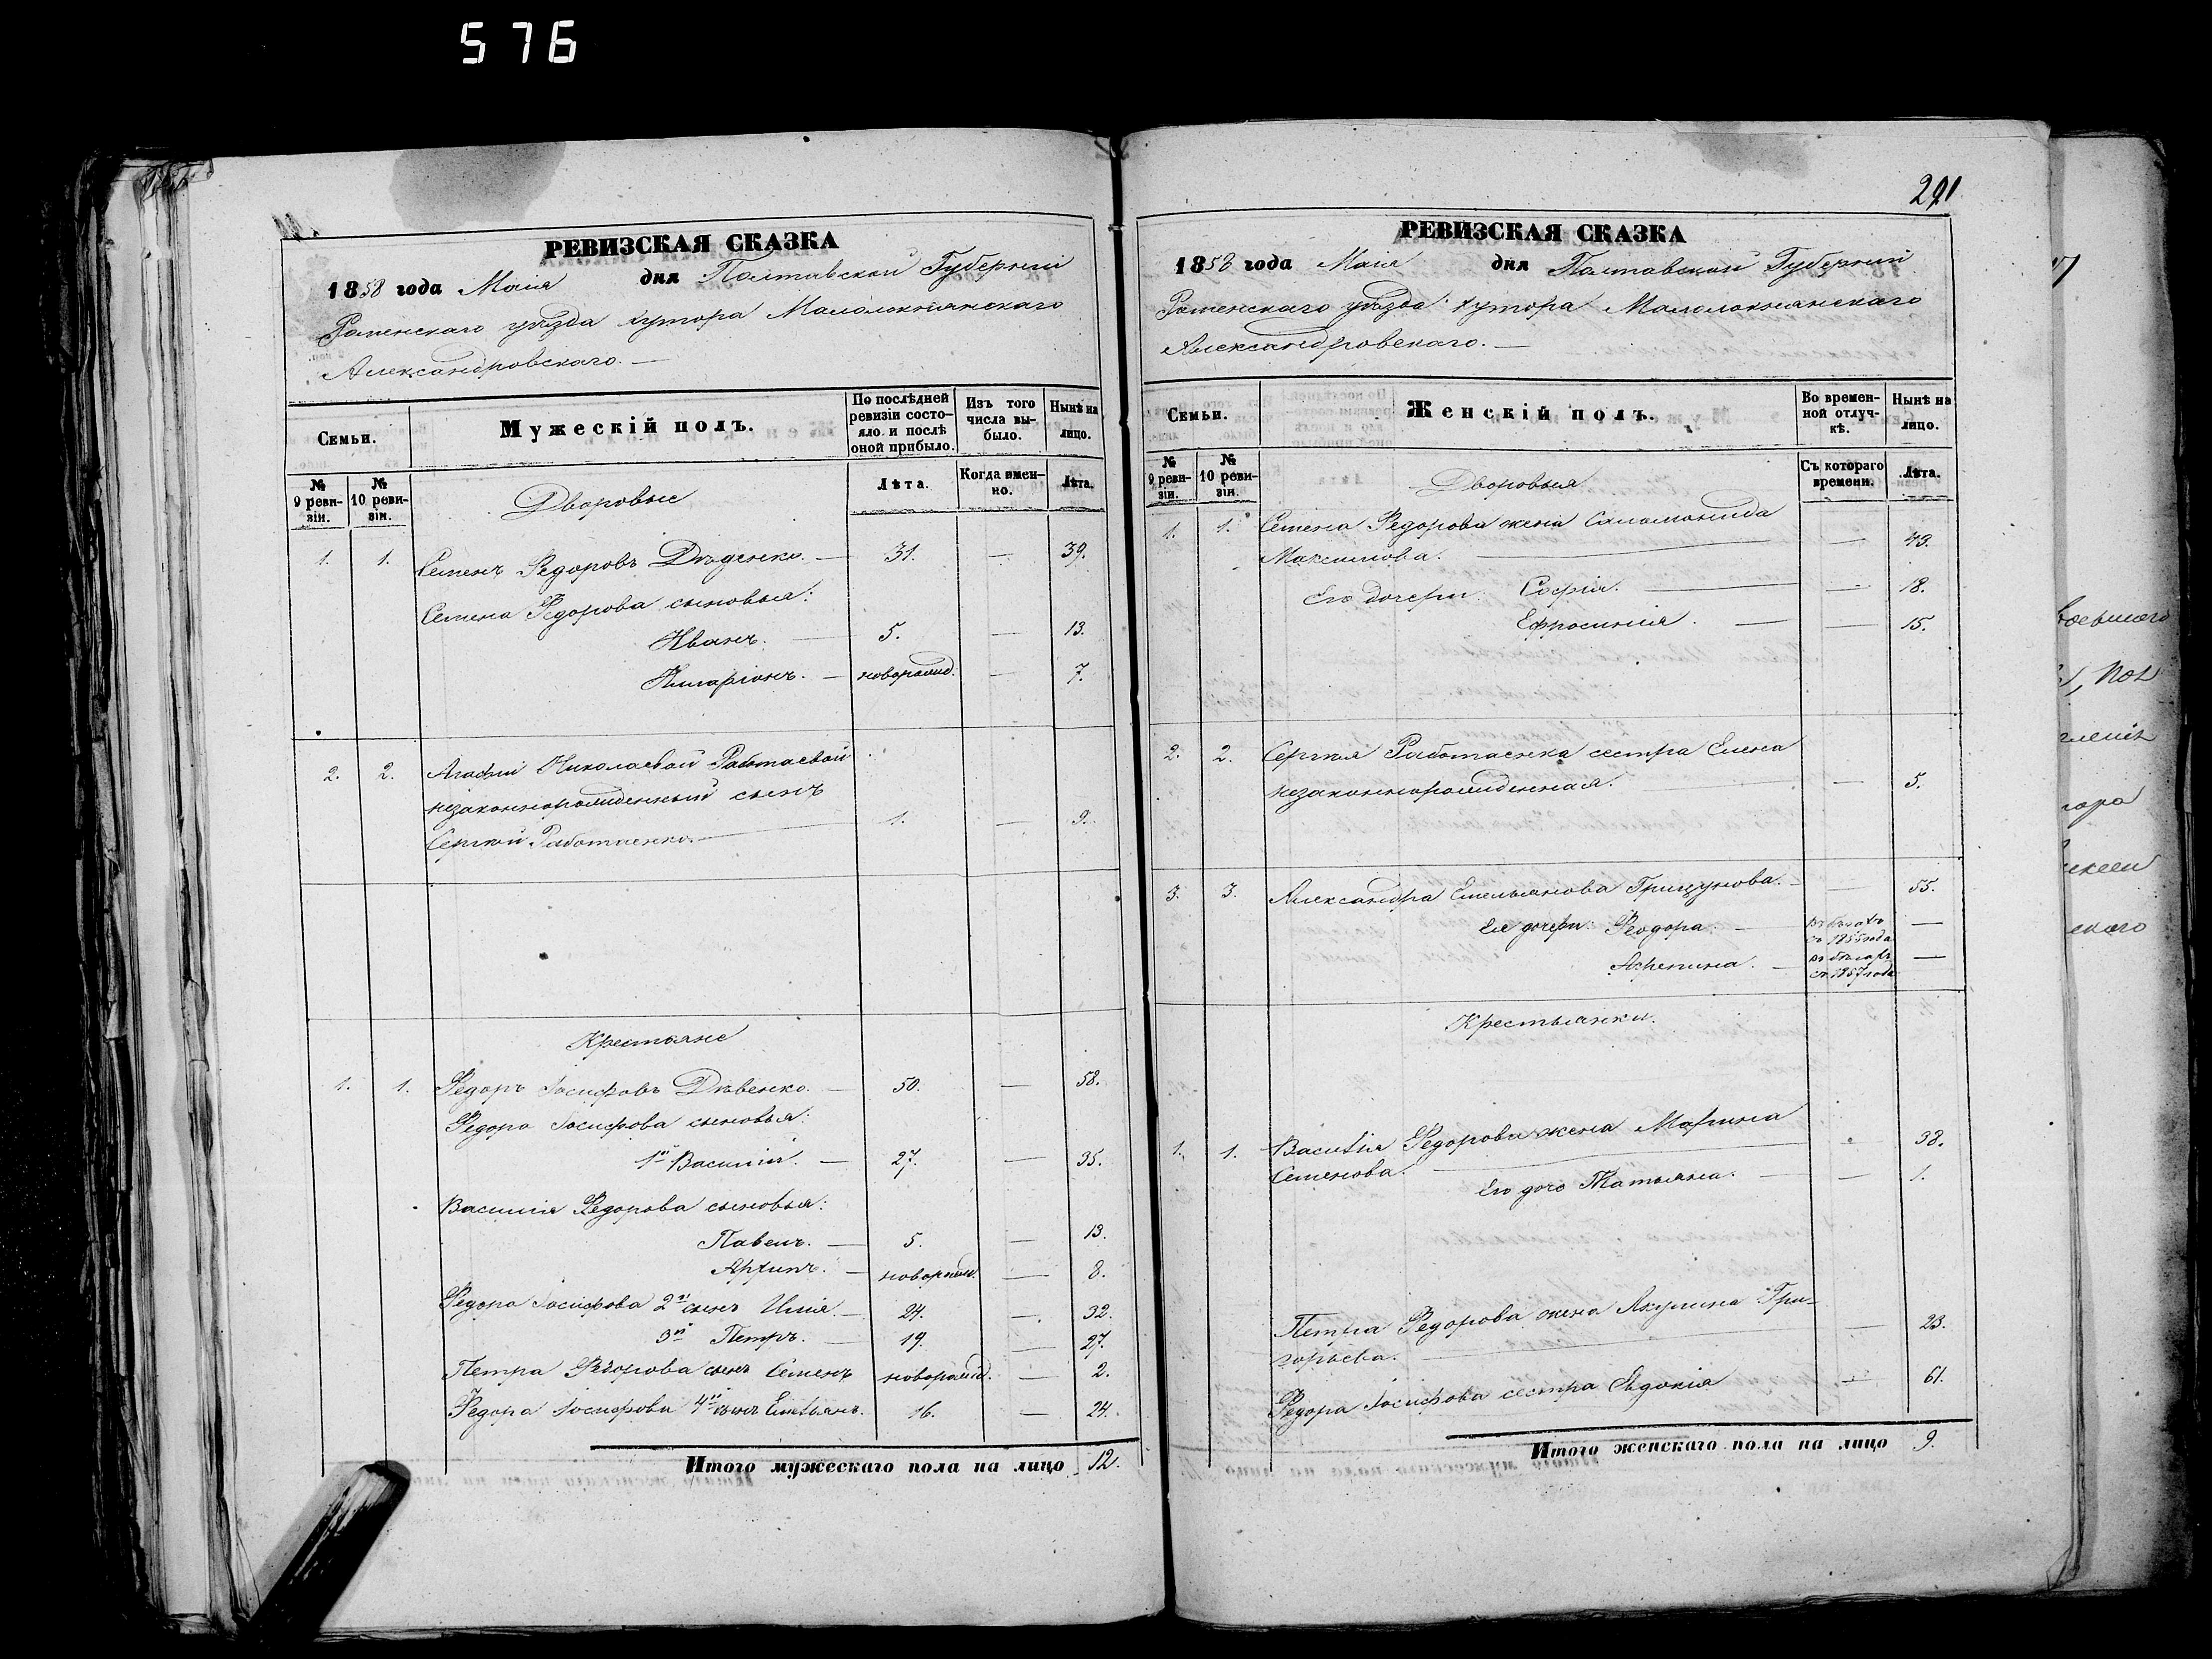 576
РЕВИЗСКАЯ СКАЗКА
1858 года Маія дня Полтавской Губерніи
Роменскаго уѣзда хутора Малолокнянскаго
Александровскаго. —
Семьи.
Мужескій полъ.
По послѣдней ревизіи состо-
яло и послѣ
оной прибыло.
Изъ того
числа вы-
было.
Нынѣ на
лицо.
№ 9 реви-
зіи.
№ 10 реви-
зіи.
Дворовые
Лѣта.
Когда имен-
но.
Лѣта.
1. 1. Семенъ Федоровъ Дѣденко. — 31. — 39.
Семена Федорова сыновья:
Иванъ. — 5. — 13.
Иларіонъ. — новорожд. — 7.
2. 2. Агафіи Николаевой Работаевой
незаконнорожденный сынъ
Сергѣй Работаенко. — 1. — 9.
Крестьяне
1. 1. Федоръ Іосифовъ Дѣвенко. — 50. — 58.
Федора Іосифова сыновья:
1й Василій. — 27. — 35.
Василія Федорова сыновья:
Павелъ. — 5. — 13.
Архипъ. — новорожд. — 8.
Федора Іосифова 2й сынъ Илія. — 24. — 32.
3й Петръ. — 19. — 27.
Петра Федорова сынъ Семенъ новорожд. — 2.
Федора Іосифова 4й сынъ Емельянъ. 16. — 24.
Итого мужескаго пола на лицо 12.
291
РЕВИЗСКАЯ СКАЗКА
1858 года Маія дня Полтавской Губерніи
Роменскаго уѣзда хутора Малолокнянскаго
Александровскаго. —
Семьи.
Женскій полъ.
Во времен-
ной отлуч-
кѣ.
Нынѣ на
лицо.
№ 9 реви-
зіи.
№ 10 реви-
зіи.
Дворовыя
Съ котораго
времени.
Лѣта.
1. 1. Семена Федорова жена Саломонида
Максимова. — — 49.
Его дочери: Софія. — — 18.
Ефросинія. — — 15.
2. 2. Сергѣя Работаенка сестра Елена
незаконнорожденная. — 5.
3. 3. Александра Емельянова Грицунова. — — 55.
Ея дочери: Феодора. — въ бѣгахъ
съ 1855 года —
Агрепина. — въ бѣгахъ
съ 1857 года —
Крестьянки.
1. 1. Василія Федорова жена Марина
Семенова. — 38.
Его дочь Татьяна. — — 1.
Петра Федорова жена Акулина Гри-
горьева. — — 23.
Федора Іосифова сестра Евдокія — 61.
Итого женскаго пола на лицо 9.